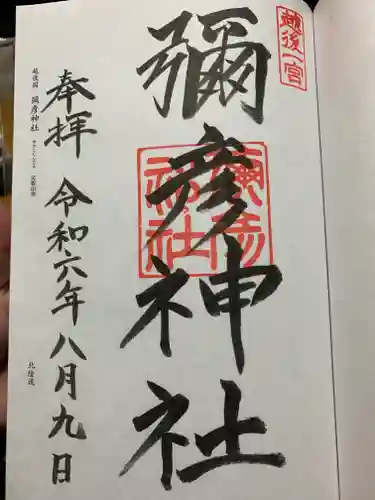 越後一宮
彌彦神社
彌彦神社
奉拝 令和六年八月九日
越後國 彌彦神社
北陸道